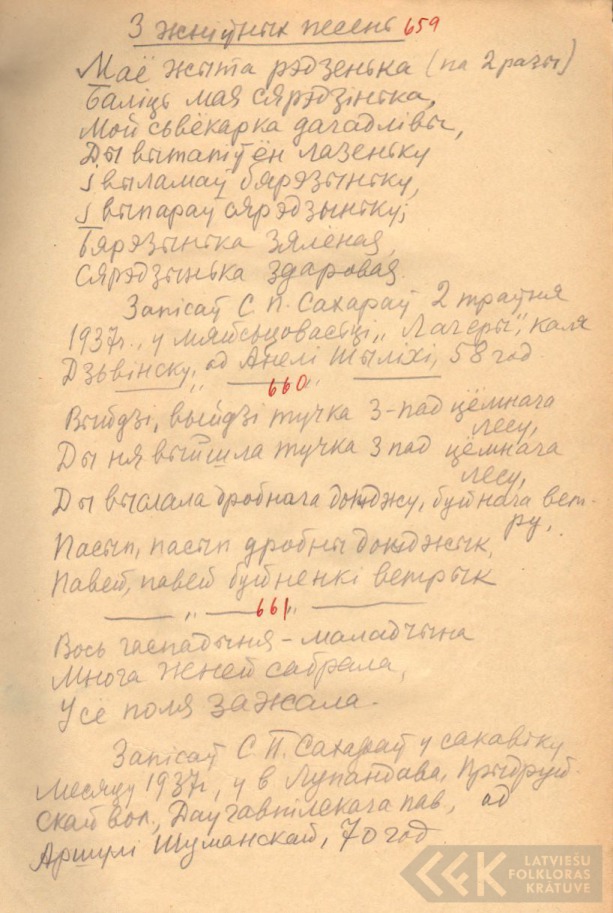 З жніўных песень 659
Маё жыта рэдзенька (па 2 разы)
Баліць мая сярэдзінька,
Мой сьвёкарка дагадлівы,
Ды вытапіў ён лазеньку
І выламаў бярэзыньку,
І выпараў сярэдзыньку;
Бярэзынька зялёная,
Сярэдзынька здаровая.
Запісаў С. П. Сахараў 2 траўня
1937г., у мяйсцовасьці "Лагеры", каля
Дзьвінску, ад Анелі Шыліхі, 58 год.
660
Выйдзі, выйдзі тучка з-пад цёмнага
лесу,
Ды ня выйшла тучка з пад цёмнага
лесу,
Ды выслала дробнага дожджу, буйнага вет-
ру,
Пасып, пасып дробны дожджык,
Павей, павей буйненкі ветрык
661
Вось гаспадыня - маладчына
Многа жней сабрала,
Усё поля зажала.
Запісаў С. П. Сахараў у сакавіку
месяцу 1937г., у в. Лупандава, Прыдруй-
скай вол., Даугавпілскага пав., ад
Аршулі Шуманскай, 70 год
LATVIEŠU
FOLKLORAS
KRĀTUVE